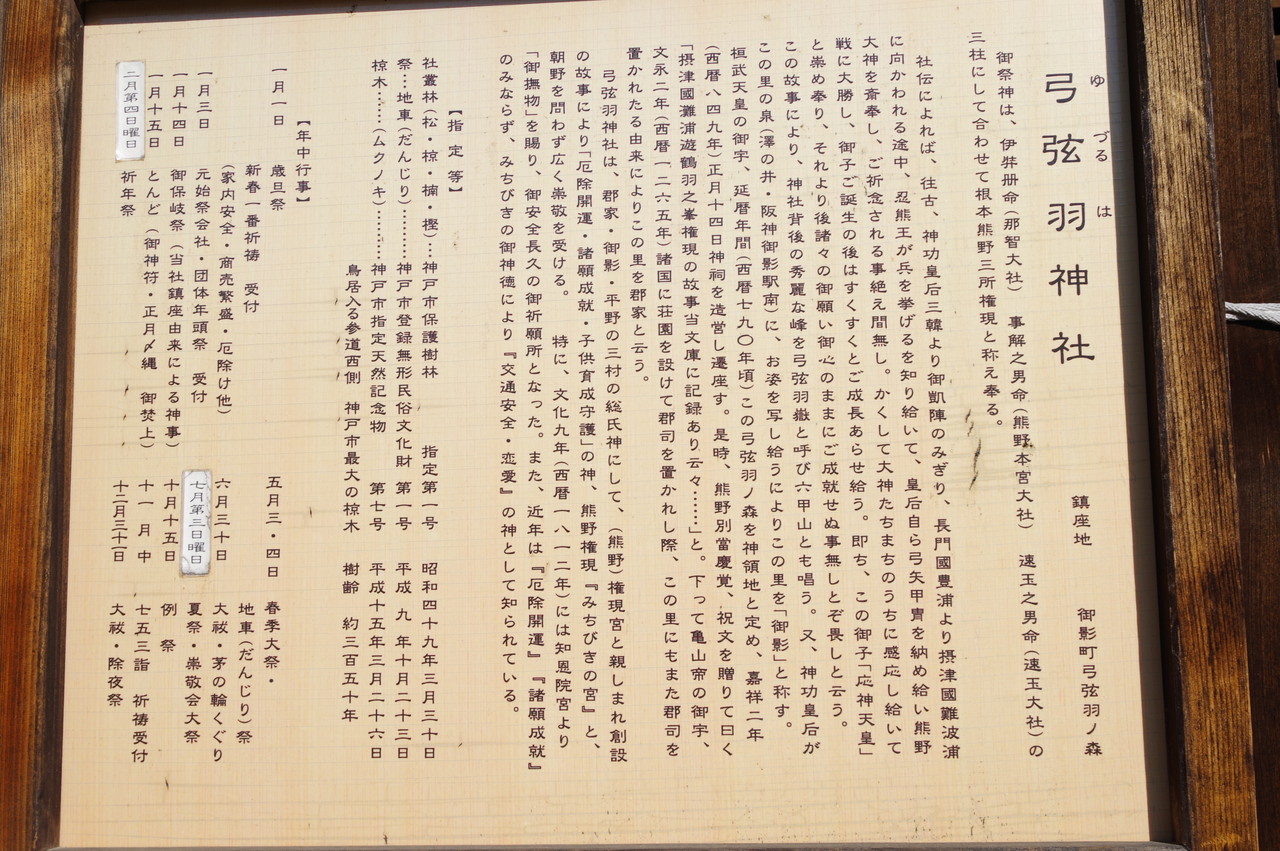 ゆづるは
弓弦羽神社
鎮座地　御影町弓弦羽ノ森
御祭神は、伊弉册命（那智大社）　事解之男命（熊野本宮大社）　速玉之男命（速玉大社）の
三柱にして合わせて根本熊野三所権現と称え奉る。
社伝によれば、往古、神功皇后三韓より御凱陣のみぎり、長門國豊浦より摂津國難波浦
に向かわれる途中、忍熊王が兵を挙げるを知り給いて、皇后自ら弓矢甲冑を納め給い熊野
大神を斎奉し、ご祈念される事絶え間無し。かくして大神たちまちのうちに感応し給いて
戦に大勝し、御子ご誕生の後はすくすくとご成長あらせ給う。即ち、この御子「応神天皇」
と崇め奉り、それより後諸々の御願い御心のままにご成就せぬ事無しとぞ畏しと云う。
この故事により、神社背後の秀麗な峰を弓弦羽嶽と呼び六甲山とも唱う。又、神功皇后が
この里の泉（澤の井・阪神御影駅南）に、お姿を写し給うによりこの里を「御影」と称す。
桓武天皇の御宇、延暦年間（西暦七九〇年頃）この弓弦羽ノ森を神領地と定め、嘉祥二年
（西暦八四九年）正月十四日神祠を造営し遷座す。是時、熊野別當慶覚、祝文を贈りて曰く
「摂津國灘浦遊鶴羽之峯権現の故事当文庫に記録あり云々……」と。下って亀山帝の御宇、
文永二年（西暦一二六五年）諸国に荘園を設けて郡司を置かれし際、この里にもまた郡司を
置かれたる由来によりこの里を郡家と云う。
弓弦羽神社は、郡家・御影・平野の三村の総氏神にして、（熊野）権現宮と親しまれ創設
の故事により「厄除開運・諸願成就・子供育成守護」の神、熊野権現『みちびきの宮』と、
朝野を問わず広く崇敬を受ける。　特に、文化九年（西暦一八一二年）には知恩院宮より
「御撫物」を賜り、御安全長久の御祈願所となった。また、近年は『厄除開運』『諸願成就』
のみならず、みちびきの御神徳により『交通安全・恋愛』の神として知られている。
【指定等】
社叢林（松・椋・楠・樫）…神戸市保護樹林　指定第一号　昭和四十九年三月三十日
祭…地車（だんじり）………神戸市登録無形民俗文化財　第一号　平成 九 年十月二十三日
椋木……（ムクノキ）………神戸市指定天然記念物　第七号　平成十五年三月二十六日
鳥居入る参道西側　神戸市最大の椋木　樹齢　約三百五十年
【年中行事】
一月一日　歳旦祭
新春一番祈祷　受付
（家内安全・商売繁盛・厄除け他）
一月三日　元始祭会社・団体年頭祭　受付
一月十四日　御保岐祭（当社鎮座由来による神事）
一月十五日　とんど（御神符・正月〆縄　御焚上）
二月第四日曜日　祈年祭
五月三・四日　春季大祭・
地車（だんじり）祭
六月三十日　大祓・茅の輪くぐり
七月第三日曜日　夏祭・崇敬会大祭
十月十五日　例　祭
十一 月 中　七五三詣　祈祷受付
十二月三十一日　大祓・除夜祭